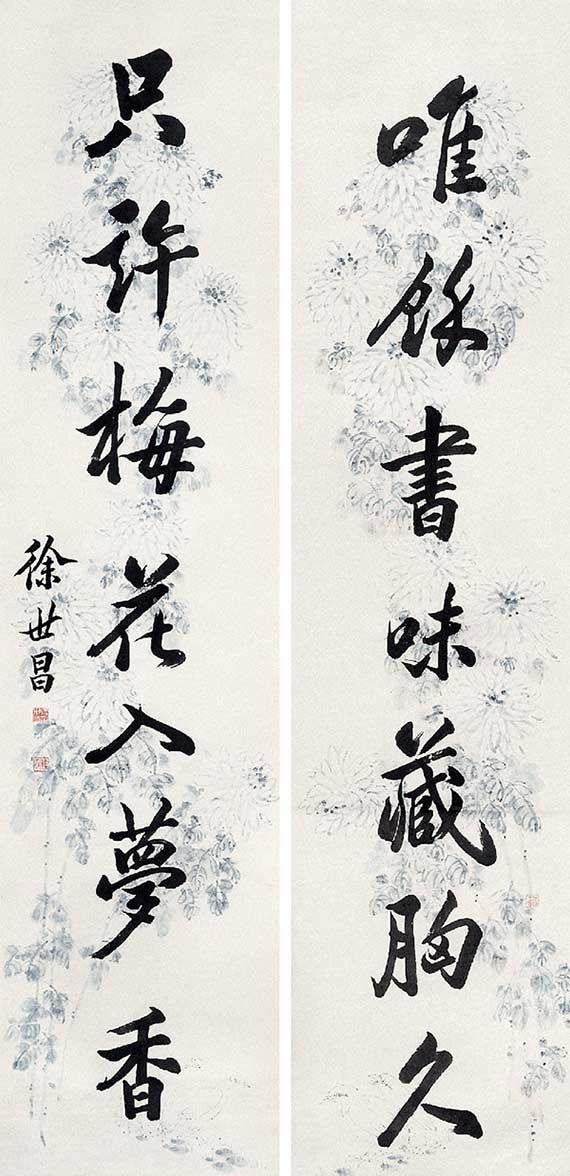 唯餘書味藏胸久
只許梅花入夢香
徐世昌